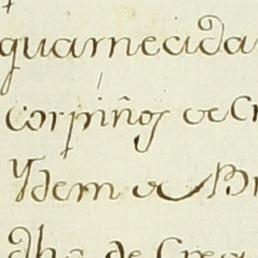 guarnecida
corpiños de Cr
Ydem de Br
dho de Crea